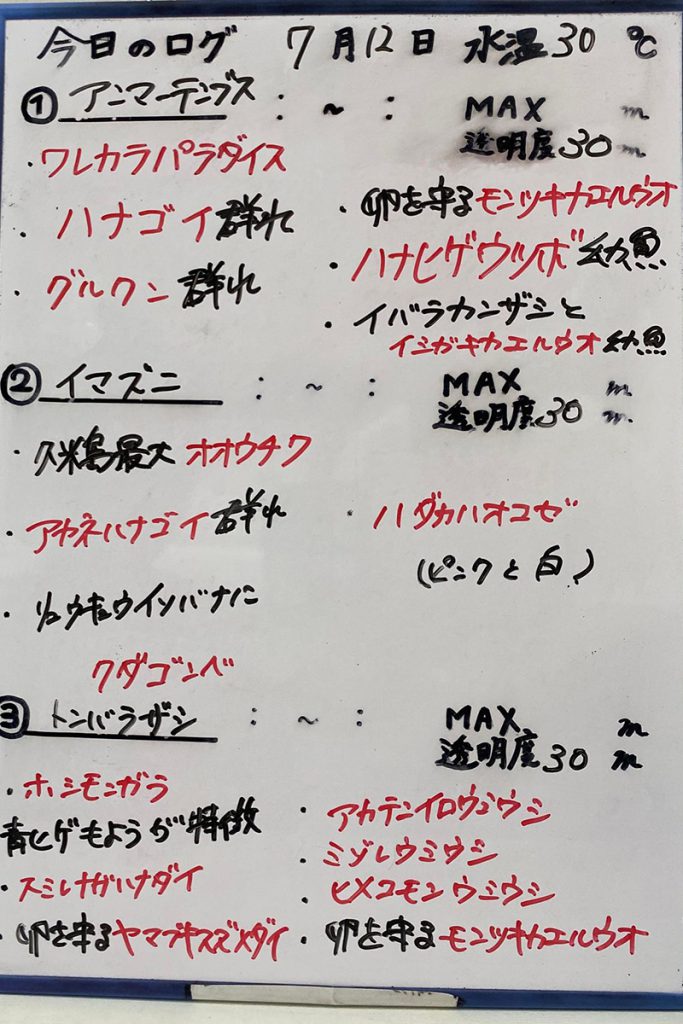 今日のログ 7月12日 水温30 ℃
① アンマーテンブス : ~ : MAX m
透明度30 m
・ワレカラパラダイス
・ハナゴイ群れ
・グルクン群れ
・卵を守るモンツキカエルウオ
・ハナヒゲウツボ幼魚
・イバラカンザシと
イシガキカエルウオ幼魚
② イマズニ : ~ : MAX m
透明度30 m
・久米島最大オオウチワ
・アヤネハナゴイ群れ
・リュウキュウイソバナに
クダゴンベ
・ハダカハオコゼ
(ピンクと白)
③ トンバラザシ : ~ : MAX m
透明度30 m
・ホシモンガラ
青ヒゲもようが特徴
・スミレナガハナダイ
・卵を守るヤマブキスズメダイ
・アカテンイロウミウシ
・ミゾレウミウシ
・ヒメコモンウミウシ
・卵を守るモンツキカエルウオ